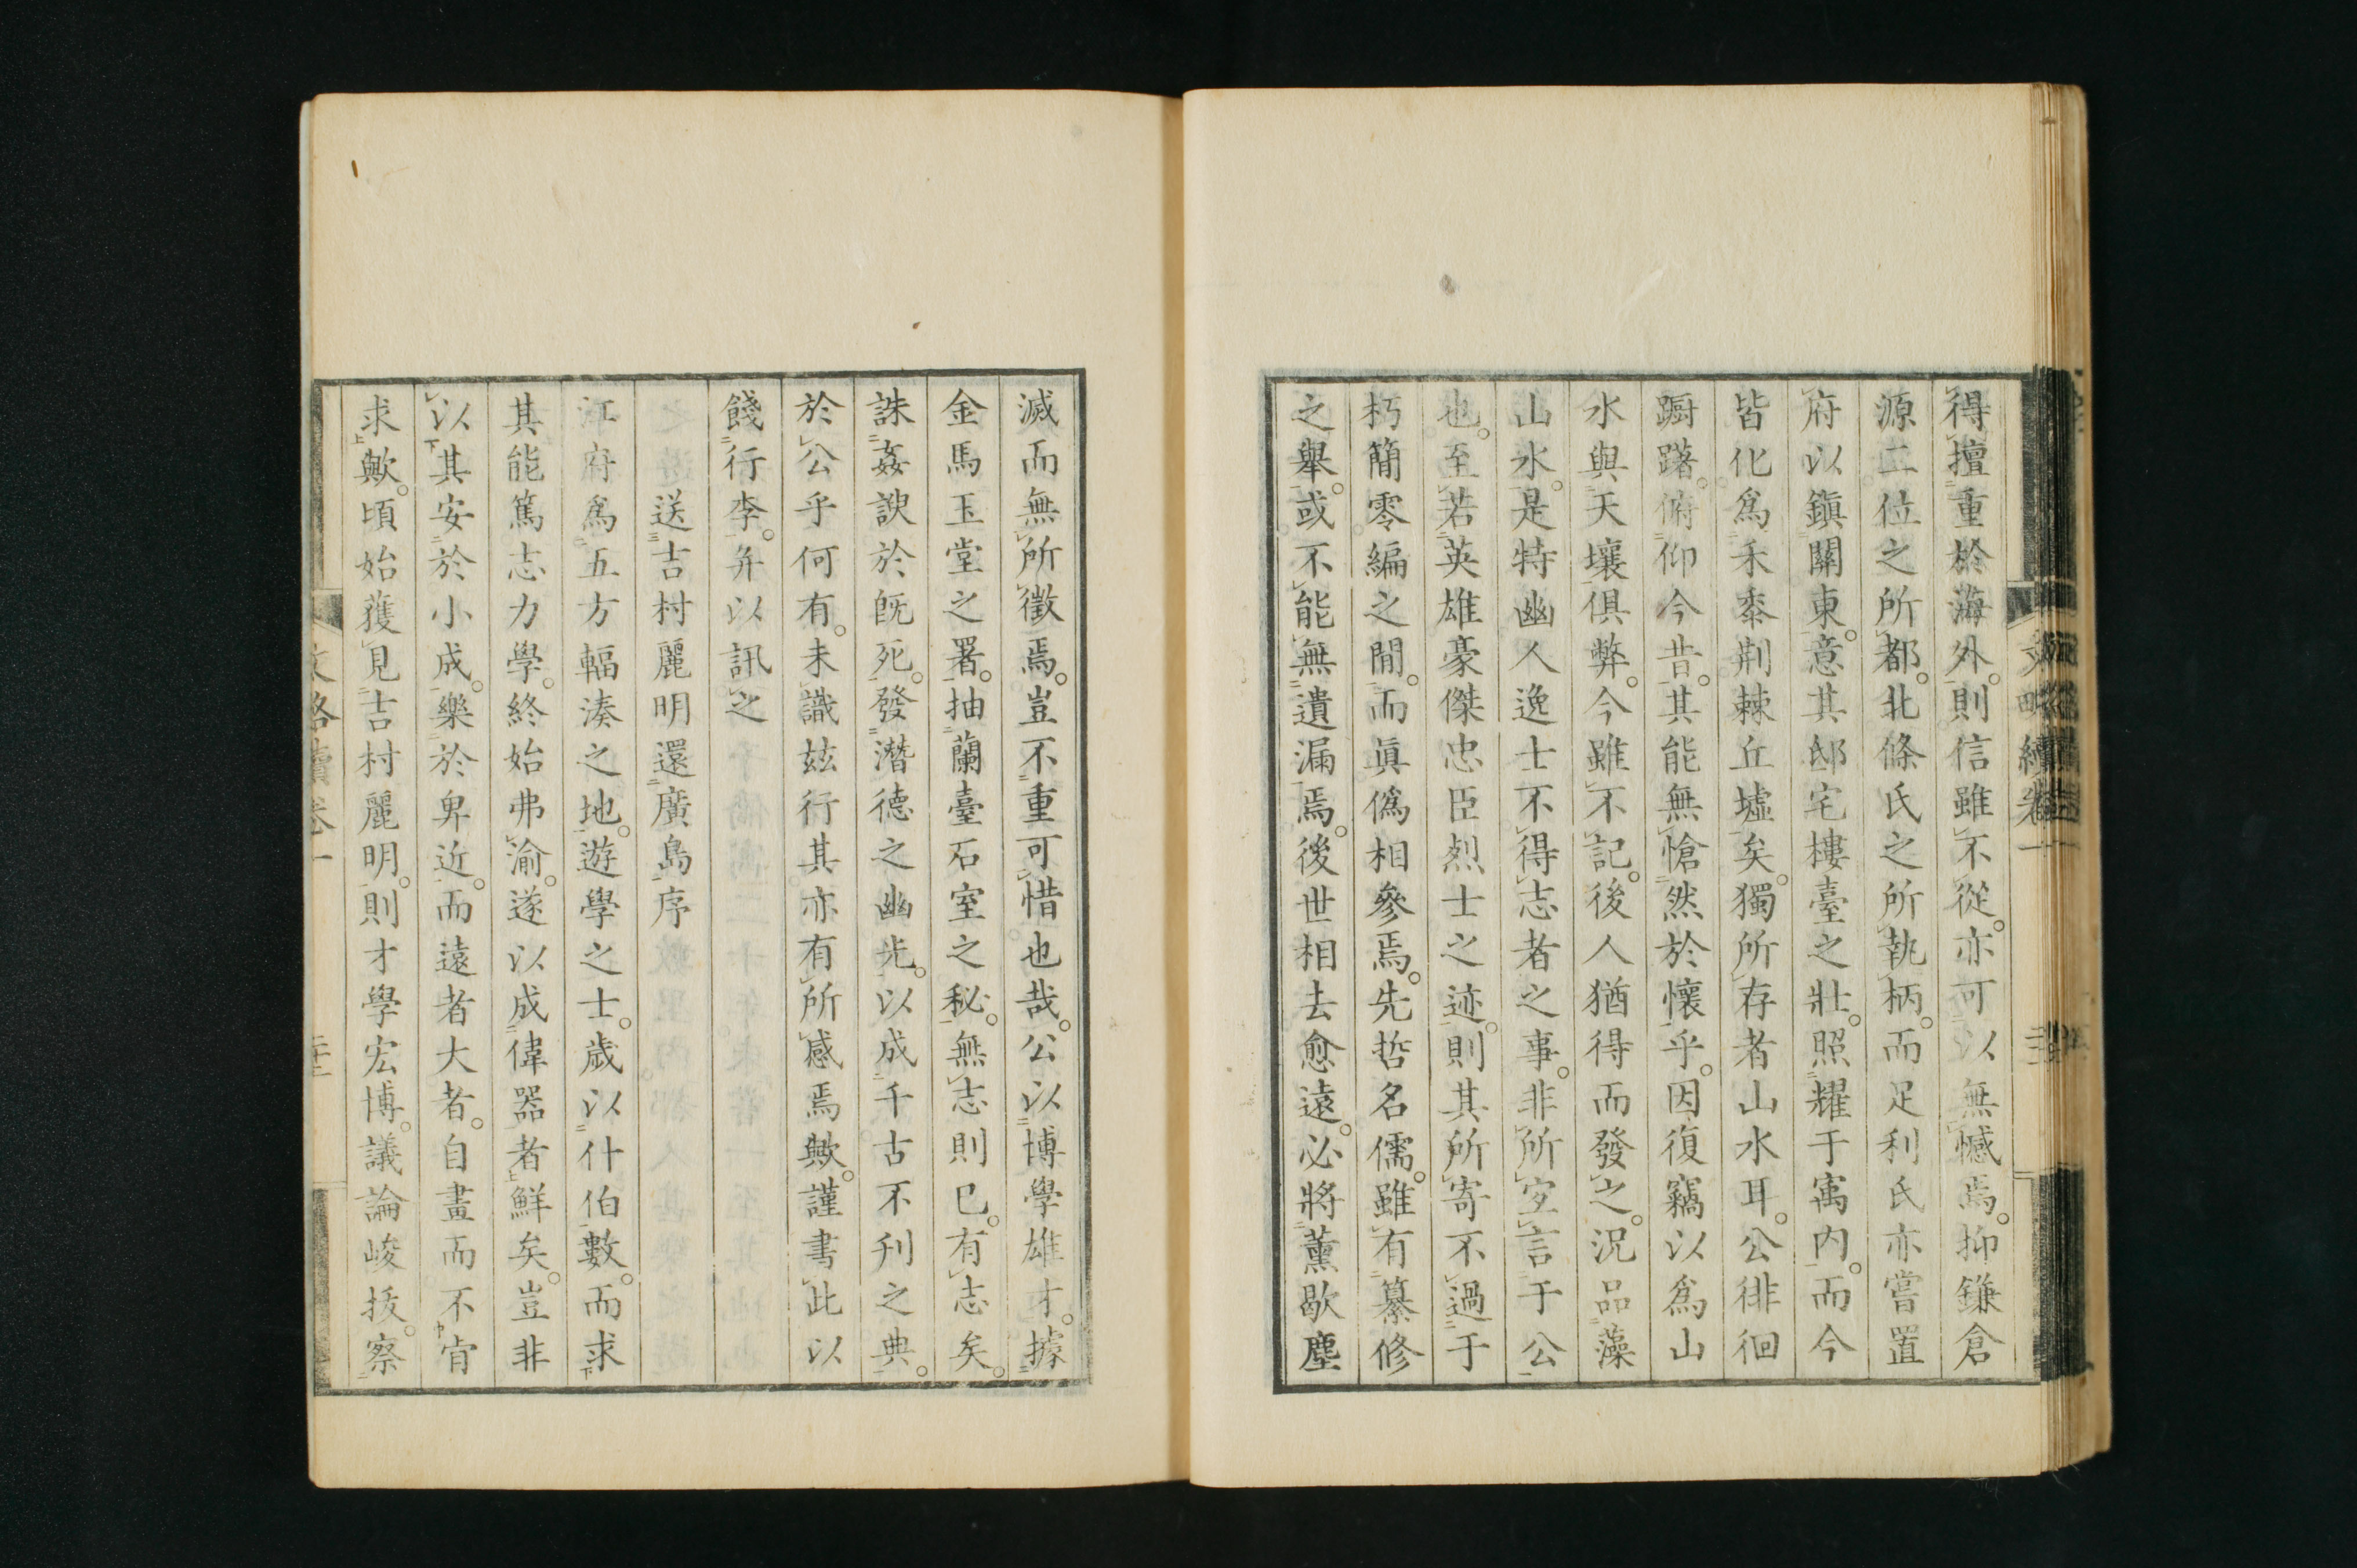 得擅重於海外則信雖不從亦可以無憾焉抑鎌倉
源二位之所都北條氏之所執柄而足利氏亦嘗置
府以鎭關東意其邸宅樓臺之壯照耀于寓内而今
皆化爲禾黍荆棘丘墟矣獨所存者山水耳公徘徊
蹰躇俯仰今昔其能無愴然於懷乎因復竊以爲山
水與天壤俱弊今雖不記後人猶得而發之況品藻
山水是特幽人逸士不得志者之事非所宜言于公
也至若英雄豪傑忠臣烈士之迹則其所寄不過于
朽簡零編之間而眞僞相參焉先哲名儒雖有纂修
之舉或不能無遺漏焉後世相去愈遠必將薰歇塵
滅而無所徵焉豈不重可惜也哉公以博學雄才據
金馬玉堂之署抽蘭臺石室之秘無志則已有志矣
誅姦諛於既死發潛德之幽光以成千古不刋之典
於公乎何有未識玆行其亦有所感焉歟謹書此以
餞行李并以訊之
送吉村麗明還廣島序
江府爲五方輻湊之地遊學之士歲以什伯數而求
其能篤志力學終始弗渝遂以成偉器者鮮矣豈非
以其安於小成樂於卑近而遠者大者自畫而不肯
求歟頃始獲見吉村麗明則才學宏博議論峻拔察
文略續卷一